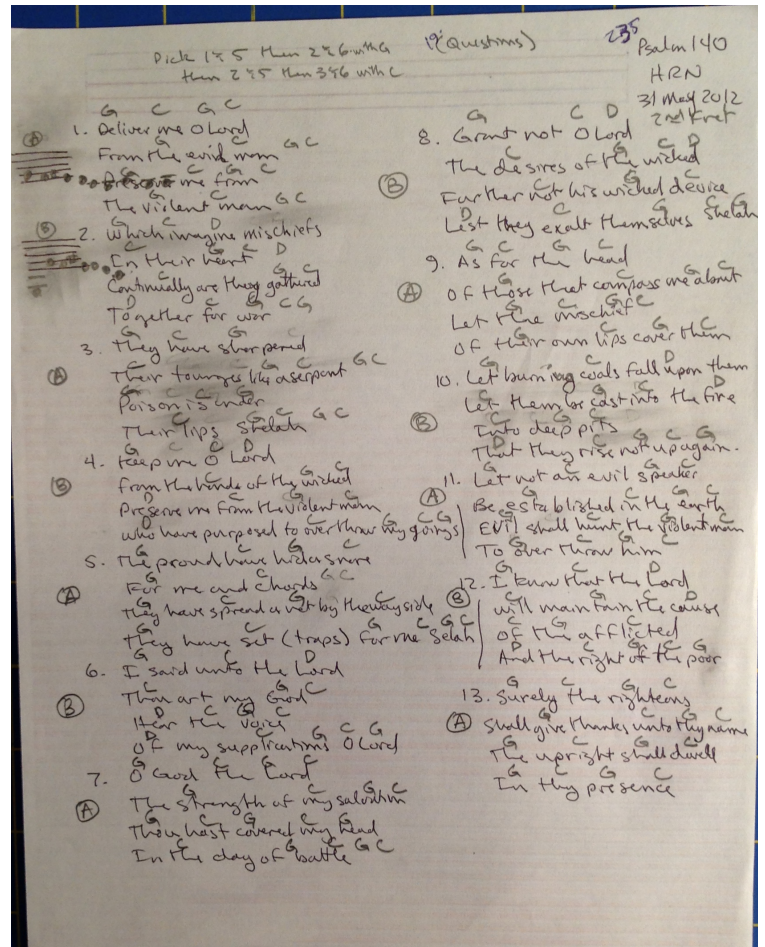 Pick 1 & 5 then 2 & 6 with G
then 2 & 5 then 3 & 6 with C
(Questions)
235
Psalm 140
HRN
31 May 2012
2nd Fret
G C G C
A
1. Deliver me O Lord
G C G C
From the evid man
G C G C
Preserve me from
The violent man G C
G C D
B
2. Which imagine mischiefs
C G C D
In their heart
C G C
Continually are they gathered
D C G C G
Together for war
G C G C
3. They have sharpened
A
Their tounges like a serpant G C
G C G C
Poison is under
C G C G C
Their lips Shelah
G C D
4. Keep me O Lord
B
C G C
From the hands of the wicked
D C G C
Preserve me from the violent man
who have purposed to over throw my goings
G C G C
5. The proud have hid a snare
A
G C G C
For me and Chords
G C G C
They have spread a net by the way side
G C G C G C
They have set (traps) for me Selah
G C D
6. I said unto the Lord
B
C G C
Thou art my God
D C G C
Hear the voice
D C G C G
Of my supplications O Lord
G C G C
7. O God the Lord
A
G C G C
The strength of my salvation
G C G C
Thou hast covered my head
C G C G C
In the day of battle
G C D
8. Grant not O Lord
C G C D
The desires of the wicked
B
C G C
Further not his wicked device
D C G C
Lest they exalt themselves Shelah
G C G C
9. As for the head
A
G C G C
Of those that compass me about
G C G C
Let the mischief
G C G C
Of their own lips cover them
G C D
10. Let burning coals fall upon them
C G C D
Let them be cast into the fire
B
C G C
Into deep pits
D C G C G
That they rise not up again.
G C G C
11. Let not an evil speaker
A
G C G C
Be established in the earth
G C G C
Evil shall hunt the violent man
G C G C
To over throw him
G C D
12. I know that the Lord
B
C G C D
will maintain the cause
C G C
Of the afflicted
D C G C G
And the right of the poor
G C G C
13. Surely the righteous
A
G C G C
Shall give thanks unto thy name
G C G C
The upright shall dwell
G C G C
In thy presence